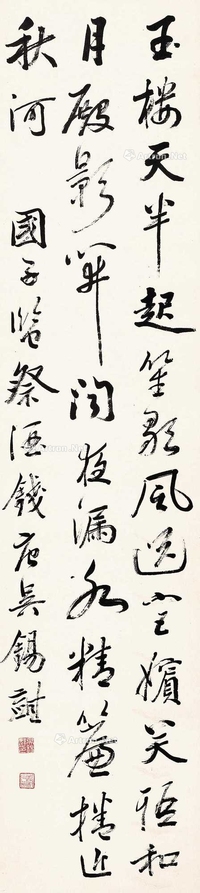 玉樓天半起笙歌風送宮嬪笑語和
月殿影開聞夜漏水精簾捲近
秋河
國子監祭酒錢唐吳錫麒